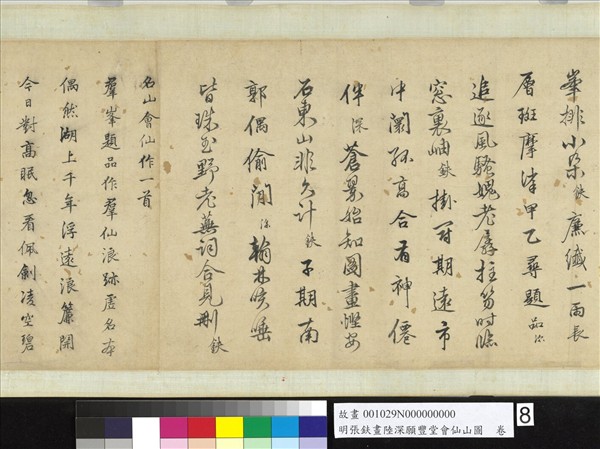 峯排小朶鈇廉纖一雨長
層斑摩浡甲乙尋題品深
追逐風騷媿老孱拄笏時臨
窓裏岫鈇掛冠期遠市
中闤孤高合有神僊
伴深蒼翠始知圖畫慳安
石東山非久計鈇子期南
郭偶偷閒深翰林咳唾
皆珠玉野老蕪詞合見刪鈇
名山會仙作一首
羣峯題品作羣仙浪跡虛名本
偶然湖上千年浮遠浪簾開
今日對高眠忽看佩劍凌空碧
故畫 001029N000000000
明張鈇畫陸深願豐堂會仙山圖 卷
8